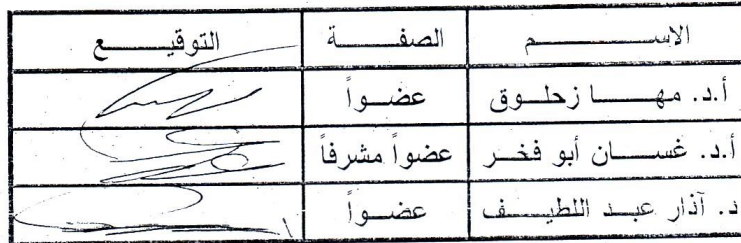 الاسم الصفة التوقيع
أ.د. مها زحلوق عضواً
أ.د. غسان أبو فخر عضواً مشرفاً
د. آذار عبد اللطيف عضواً